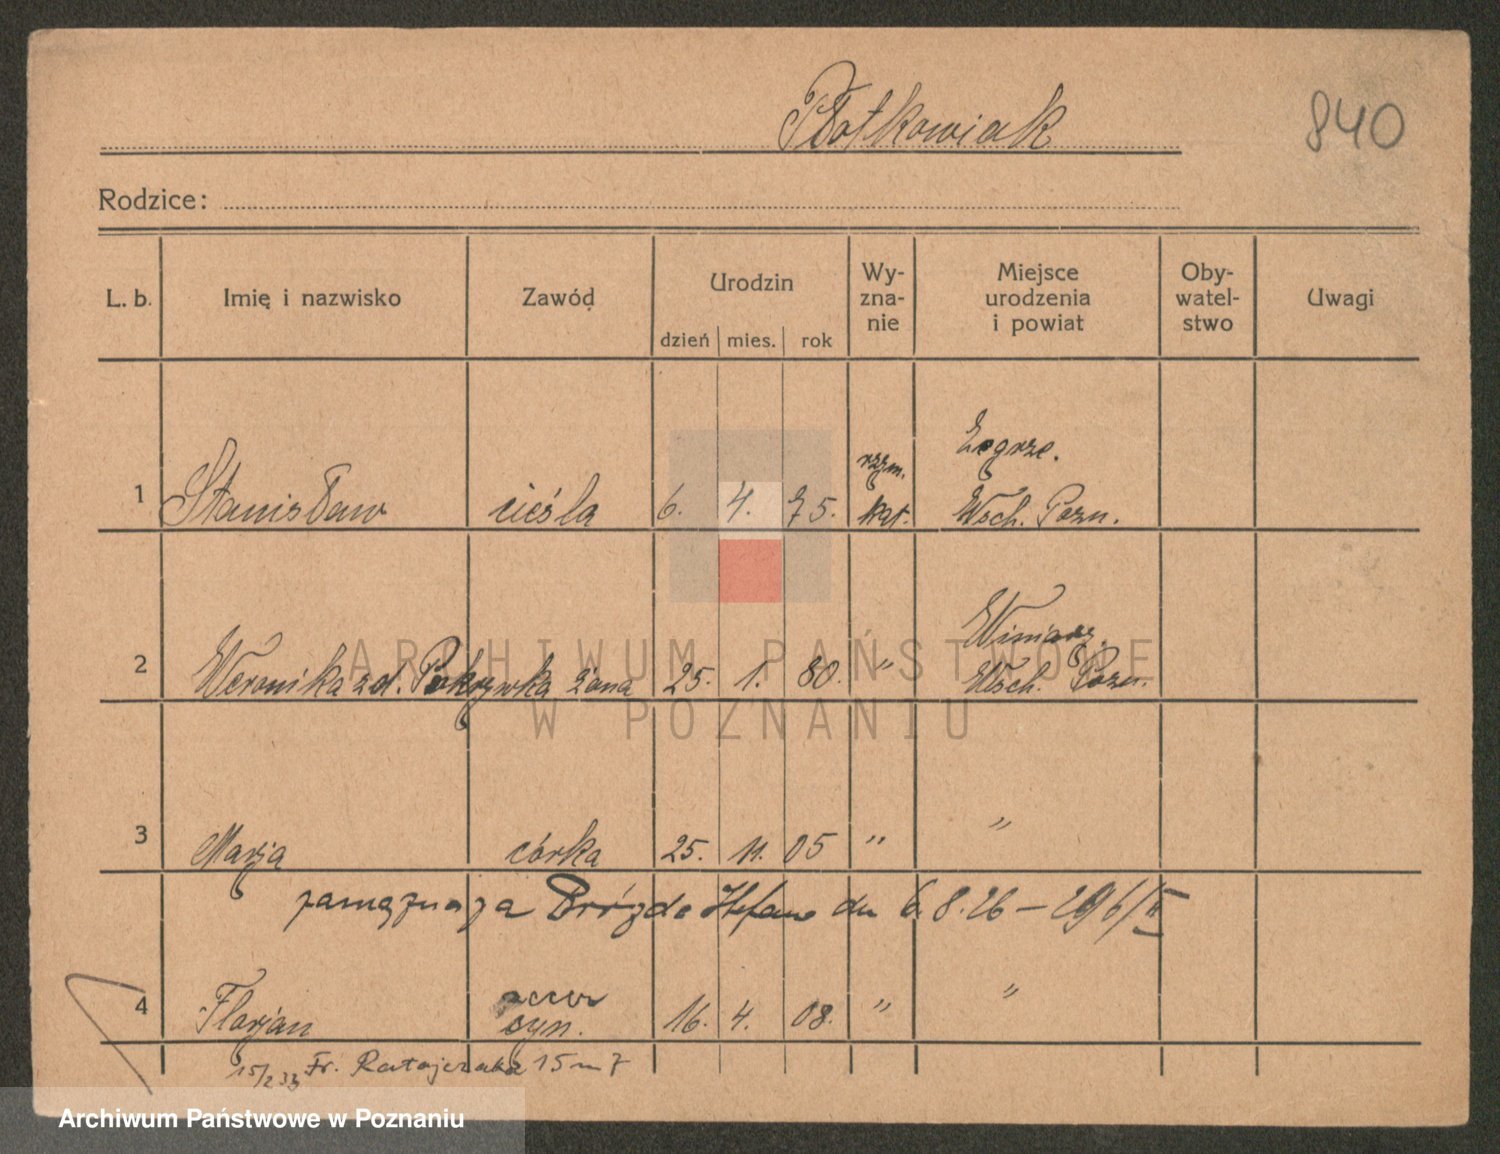 Płotkowiak
840
Rodzice:
L. b. Imię i nazwisko Zawód Urodzin dzień mies. rok Wy-zna-nie Miejsce urodzenia i powiat Oby-watel-stwo Uwagi
Żegrze.
rzym.
1 Stanisław cieśla 6. 4. 75. kat. Wsch. Pozn.
Winiary
2 Weronika zd. Pokrzywka żona 25. 1. 80. " Wsch. Pozn.
ARCHIWUM PAŃSTWOWE
W POZNANIU
3 Marja córka 25. 11. 05 " "
zamężna za Brózda Stefana dn 6.8.26 –
4 Florjan syn. 16. 4. 08. " "
15/2 33 Fr. Ratajczaka 15 m 7
Archiwum Państwowe w Poznaniu